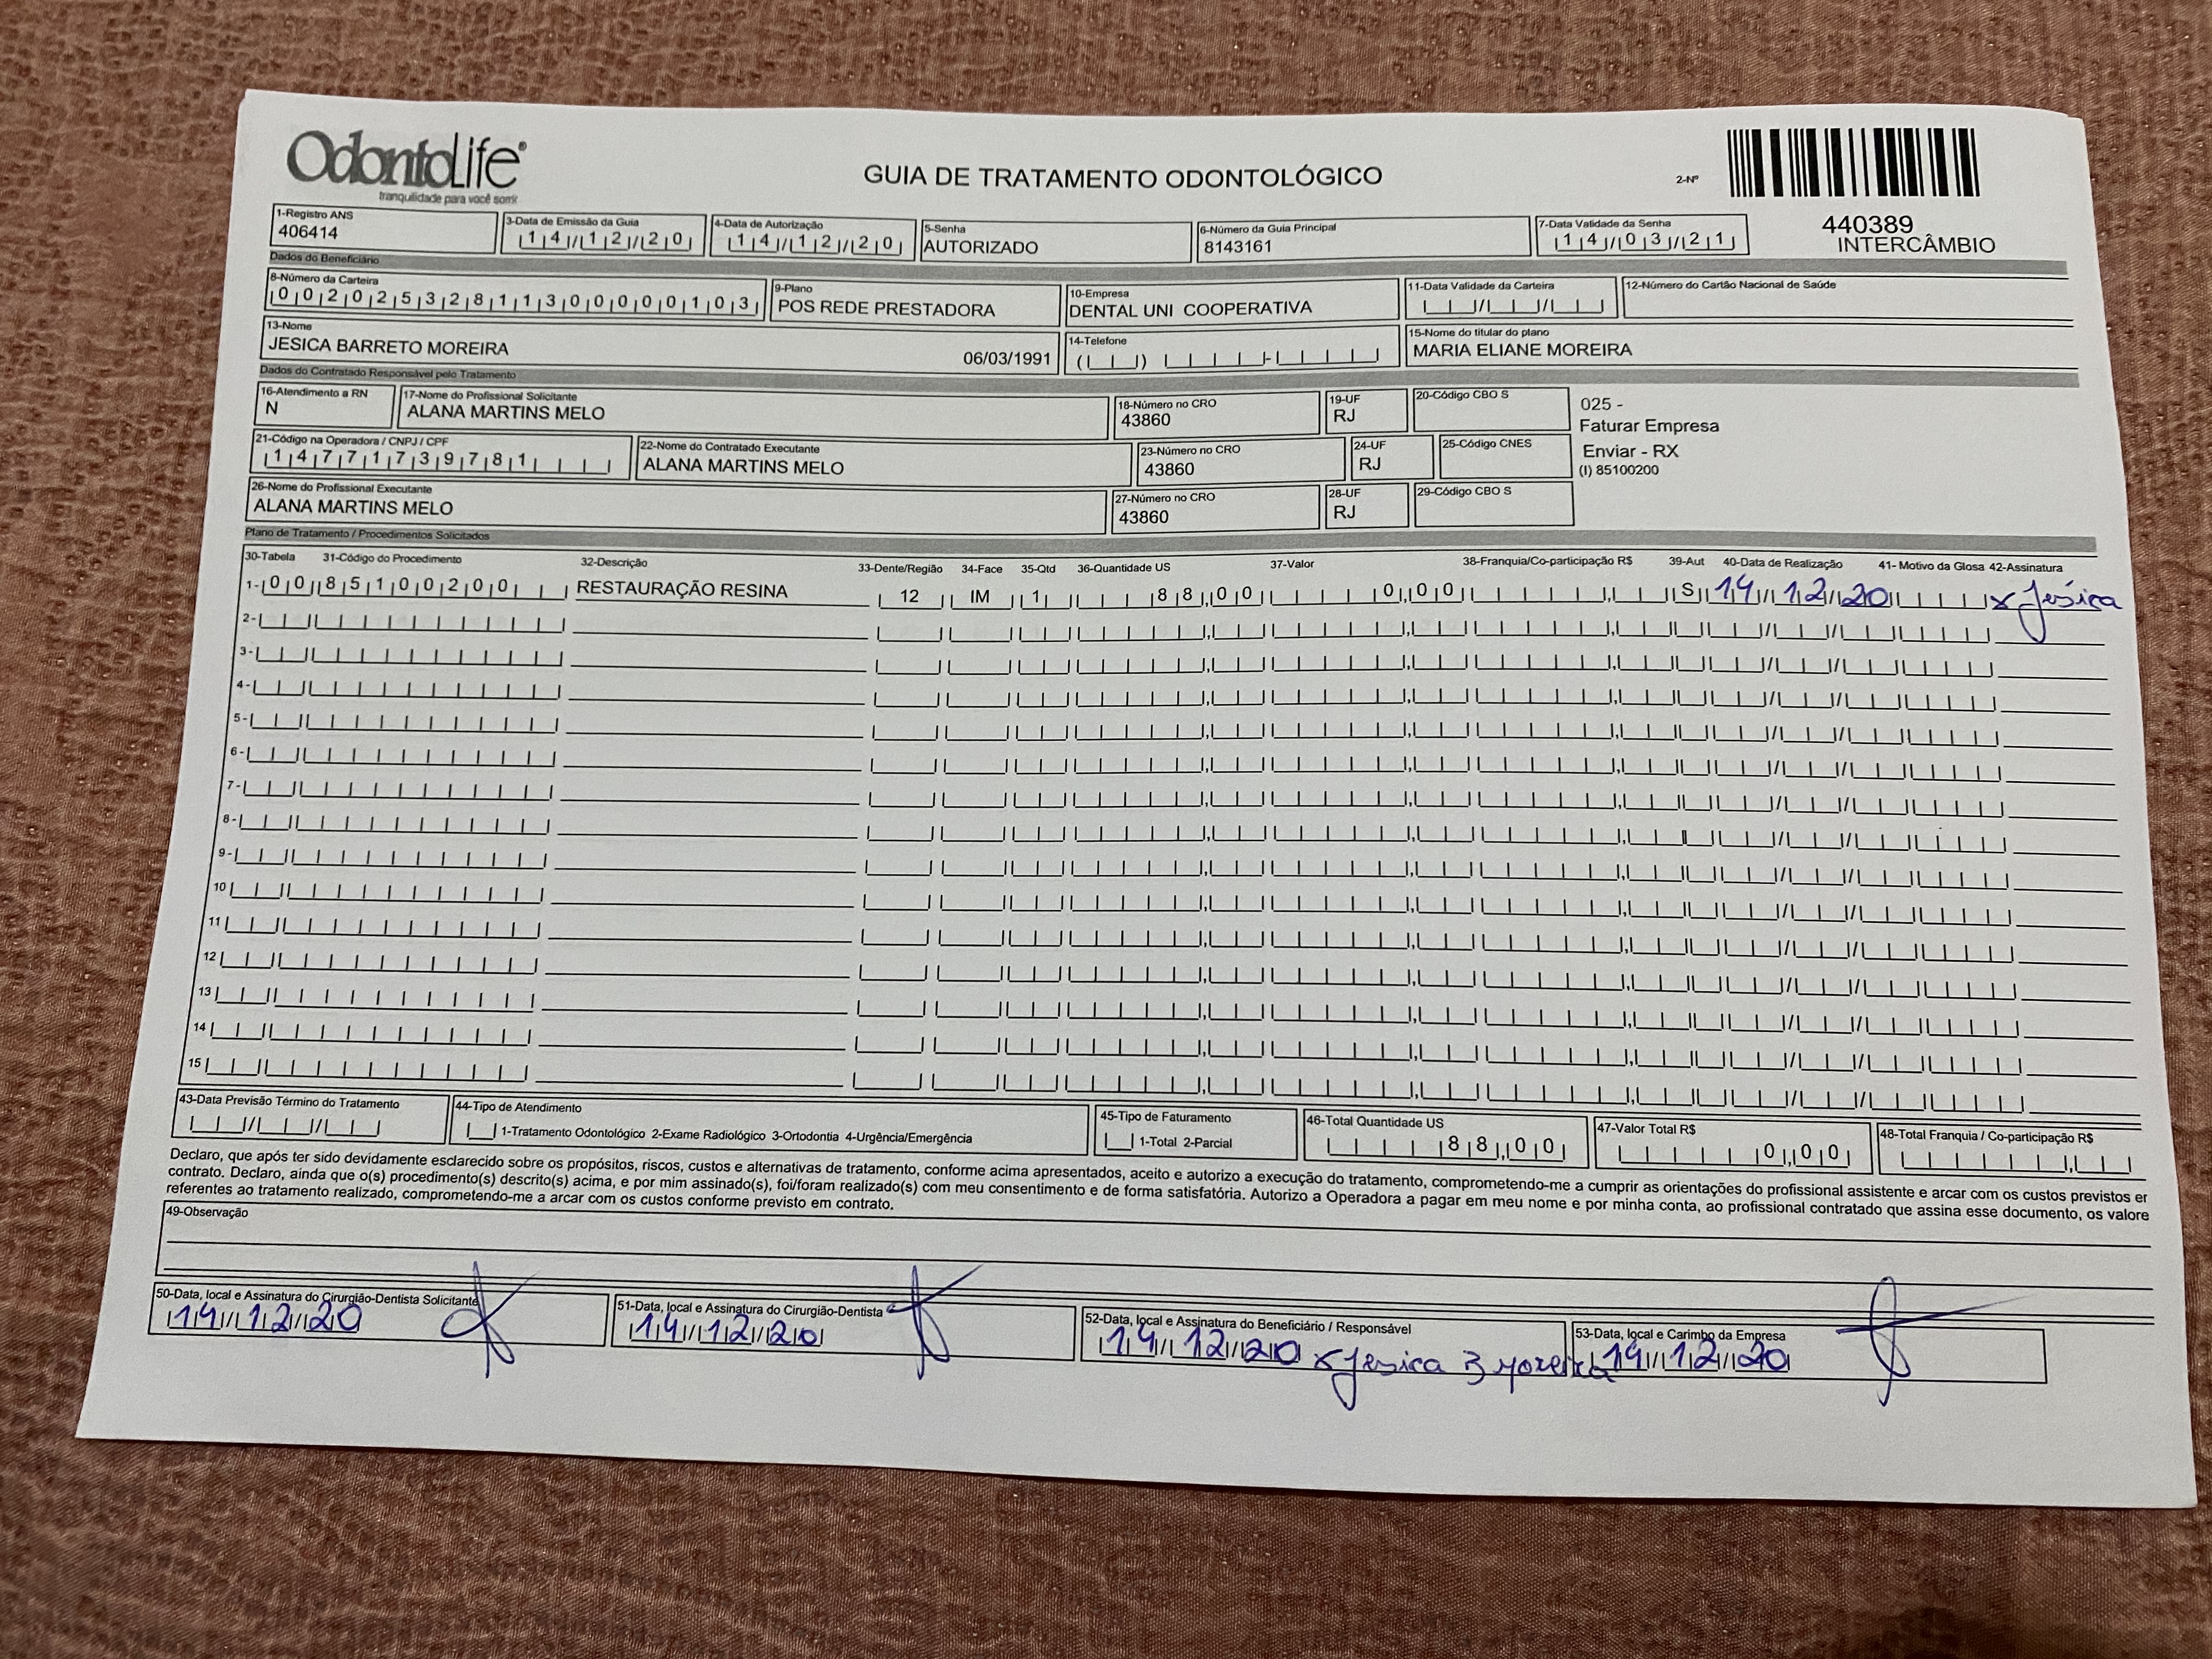 OdontoLife®
tranquilidade para você sorrir
GUIA DE TRATAMENTO ODONTOLÓGICO
2-Nº
440389
INTERCÂMBIO
1-Registro ANS
406414
3-Data de Emissão da Guia
14/12/20
4-Data de Autorização
14/12/20
5-Senha
AUTORIZADO
6-Número da Guia Principal
8143161
7-Data Validade da Senha
14/03/21
Dados do Beneficiário
8-Número da Carteira
00202532811300000103
9-Plano
POS REDE PRESTADORA
10-Empresa
DENTAL UNI COOPERATIVA
11-Data Validade da Carteira
12-Número do Cartão Nacional de Saúde
13-Nome
JESICA BARRETO MOREIRA 06/03/1991
14-Telefone
15-Nome do titular do plano
MARIA ELIANE MOREIRA
Dados do Contratado Responsável pelo Tratamento
16-Atendimento a RN
N
17-Nome do Profissional Solicitante
ALANA MARTINS MELO
18-Número no CRO
43860
19-UF
RJ
20-Código CBO S
025 -
Faturar Empresa
Enviar - RX
(I) 85100200
21-Código na Operadora / CNPJ / CPF
14771739781
22-Nome do Contratado Executante
ALANA MARTINS MELO
23-Número no CRO
43860
24-UF
RJ
25-Código CNES
26-Nome do Profissional Executante
ALANA MARTINS MELO
27-Número no CRO
43860
28-UF
RJ
29-Código CBO S
Plano de Tratamento / Procedimentos Solicitados
30-Tabela 31-Código do Procedimento 32-Descrição 33-Dente/Região 34-Face 35-Qtd 36-Quantidade US 37-Valor 38-Franquia/Co-participação R$ 39-Aut 40-Data de Realização 41- Motivo da Glosa 42-Assinatura
1- 00 85100200 RESTAURAÇÃO RESINA 12 IM 1 88,00 0,00 S 14/12/20 x Jesica
2-
3-
4-
5-
6-
7-
8-
9-
10
11
12
13
14
15
43-Data Previsão Término do Tratamento
44-Tipo de Atendimento
1-Tratamento Odontológico 2-Exame Radiológico 3-Ortodontia 4-Urgência/Emergência
45-Tipo de Faturamento
1-Total 2-Parcial
46-Total Quantidade US
88,00
47-Valor Total R$
0,00
48-Total Franquia / Co-participação R$
Declaro, que após ter sido devidamente esclarecido sobre os propósitos, riscos, custos e alternativas de tratamento, conforme acima apresentados, aceito e autorizo a execução do tratamento, comprometendo-me a cumprir as orientações do profissional assistente e arcar com os custos previstos er
contrato. Declaro, ainda que o(s) procedimento(s) descrito(s) acima, e por mim assinado(s), foi/foram realizado(s) com meu consentimento e de forma satisfatória. Autorizo a Operadora a pagar em meu nome e por minha conta, ao profissional contratado que assina esse documento, os valore
referentes ao tratamento realizado, comprometendo-me a arcar com os custos conforme previsto em contrato.
49-Observação
50-Data, local e Assinatura do Cirurgião-Dentista Solicitante
14/12/20
51-Data, local e Assinatura do Cirurgião-Dentista
14/12/20
52-Data, local e Assinatura do Beneficiário / Responsável
14/12/20 x Jesica B Moreira
53-Data, local e Carimbo da Empresa
14/12/20